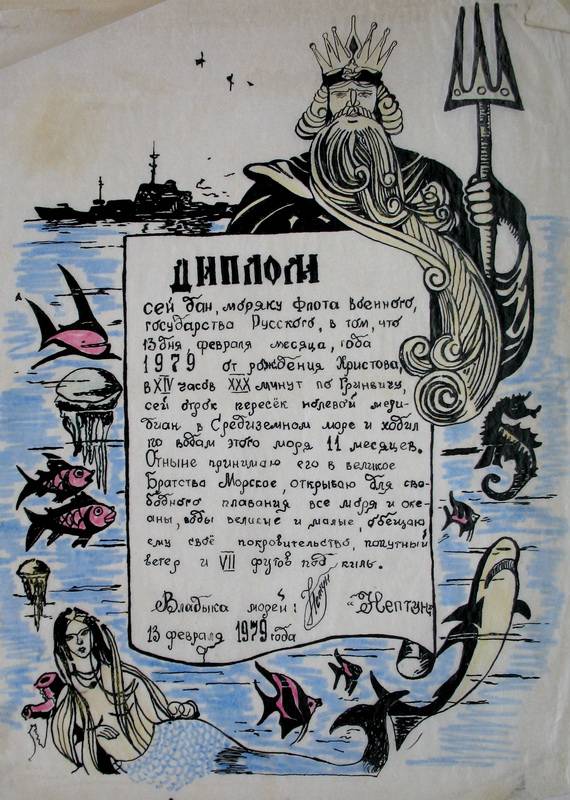 ДИПЛОМ
сей дан, моряку флота военного,
государства Русского, в том, что
13 дня, февраля месяца, года
1979 от рождения Христова,
в XIV часов XXX минут по Гринвичу,
сей отрок пересёк нолевой мери-
диан в Средиземном море и ходил
по водам этого моря 11 месяцев.
Отныне принимаю его в великое
Братство Морское, открываю для сво-
бодного плавания все моря и оке-
аны, воды великие и малые, обещаю
ему своё покровительство, попутный
ветер и VII футов под киль.
Владыка морей: Нептун "Нептун"
13 февраля 1979 года